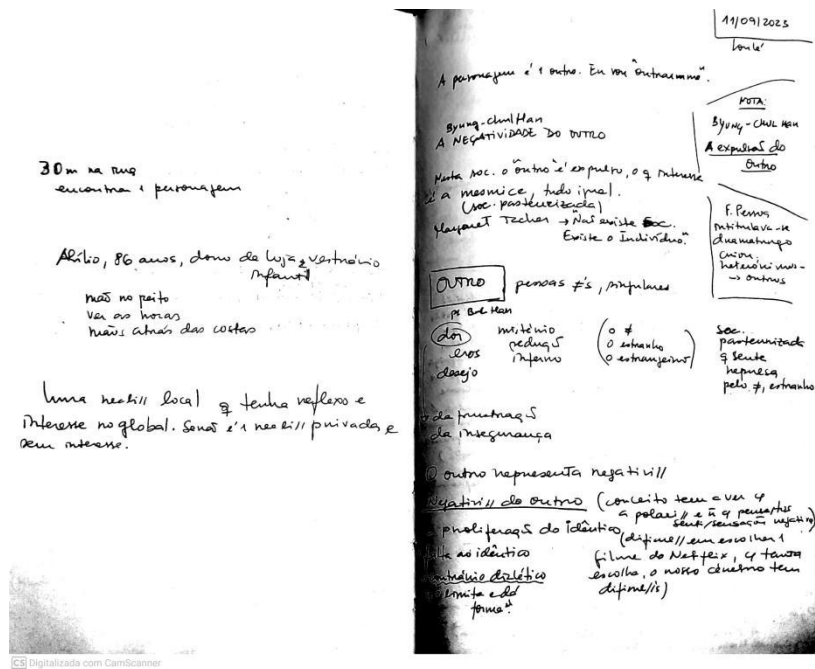 30m na rua
encontrar 1 personagem
Abílio, 86 anos, dono de loja vestuário
infantil
mão no peito
ver as horas
mãos atrás das costas
Uma reali// local q tenha reflexo e
interesse no global. Senão é 1 reali// privada e
sem interesse.
11/09/2023
Loulé
A personagem é 1 outro. Eu vou "outrar-me".
Byung-chul Han
A NEGATIVIDADE DO OUTRO
Nesta soc. o "outro" é expulso, o q interessa
é a mesmice, tudo igual.
(soc. pasteurizada)
Margaret Tacher → "Não existe soc.
Existe o Indivíduo."
NOTA:
BYUNG-CHUL HAN
A expulsão do
Outro
F. Pessoa
intitulava-se
dramaturgo
criou
heterónimos
→ outros
OUTRO pessoas ≠s, singulares
ps Bul Han
dor mistério
eros redução
desejo inferno
o ≠
o estranho
o estrangeiro
soc.
pasteurizada
q sente
represa
pelo ≠, estranho
da frustração
da insegurança
O outro representa negativi//
Negativi// do outro (conceito tem a ver c/
a polari// e ñ c/ pensar/tos
sent/sensação negativo)
proliferação do idêntico
falta ao idêntico
contrário dialético
limita e dá
forma"
(dificul// em escolher 1
filme do Netfleix, c/ tanta
escolha, o nosso cérebro tem
dificul//s)
CS Digitalizada com CamScanner